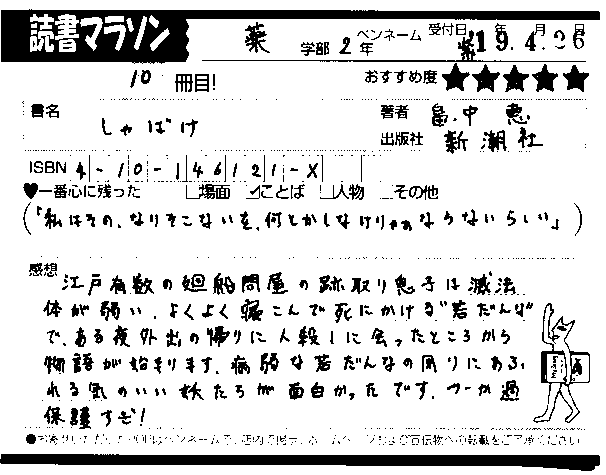 読書マラソン
薬 学部 2年 ペンネーム 紫 受付日 '19年4月26日
10 冊目! おすすめ度 ★★★★★
書名 しゃばけ
著者 畠中 恵
出版社 新潮社
ISBN 4-10-146121-X
♥一番心に残った □場面 ☑ことば □人物 □その他
(「私はその、なりそこないを、何とかしなけりゃぁならないらしい」)
感想 江戸有数の廻船問屋の跡取り息子は滅法
体が弱い、よくよく寝こんで死にかける"若だんな"
で、ある夜外出の帰りに人殺しに会ったところから
物語が始まります。病弱な若だんなの周りにあふ
れる気のいい妖たちが面白かったです。つーか過
保護すぎ!